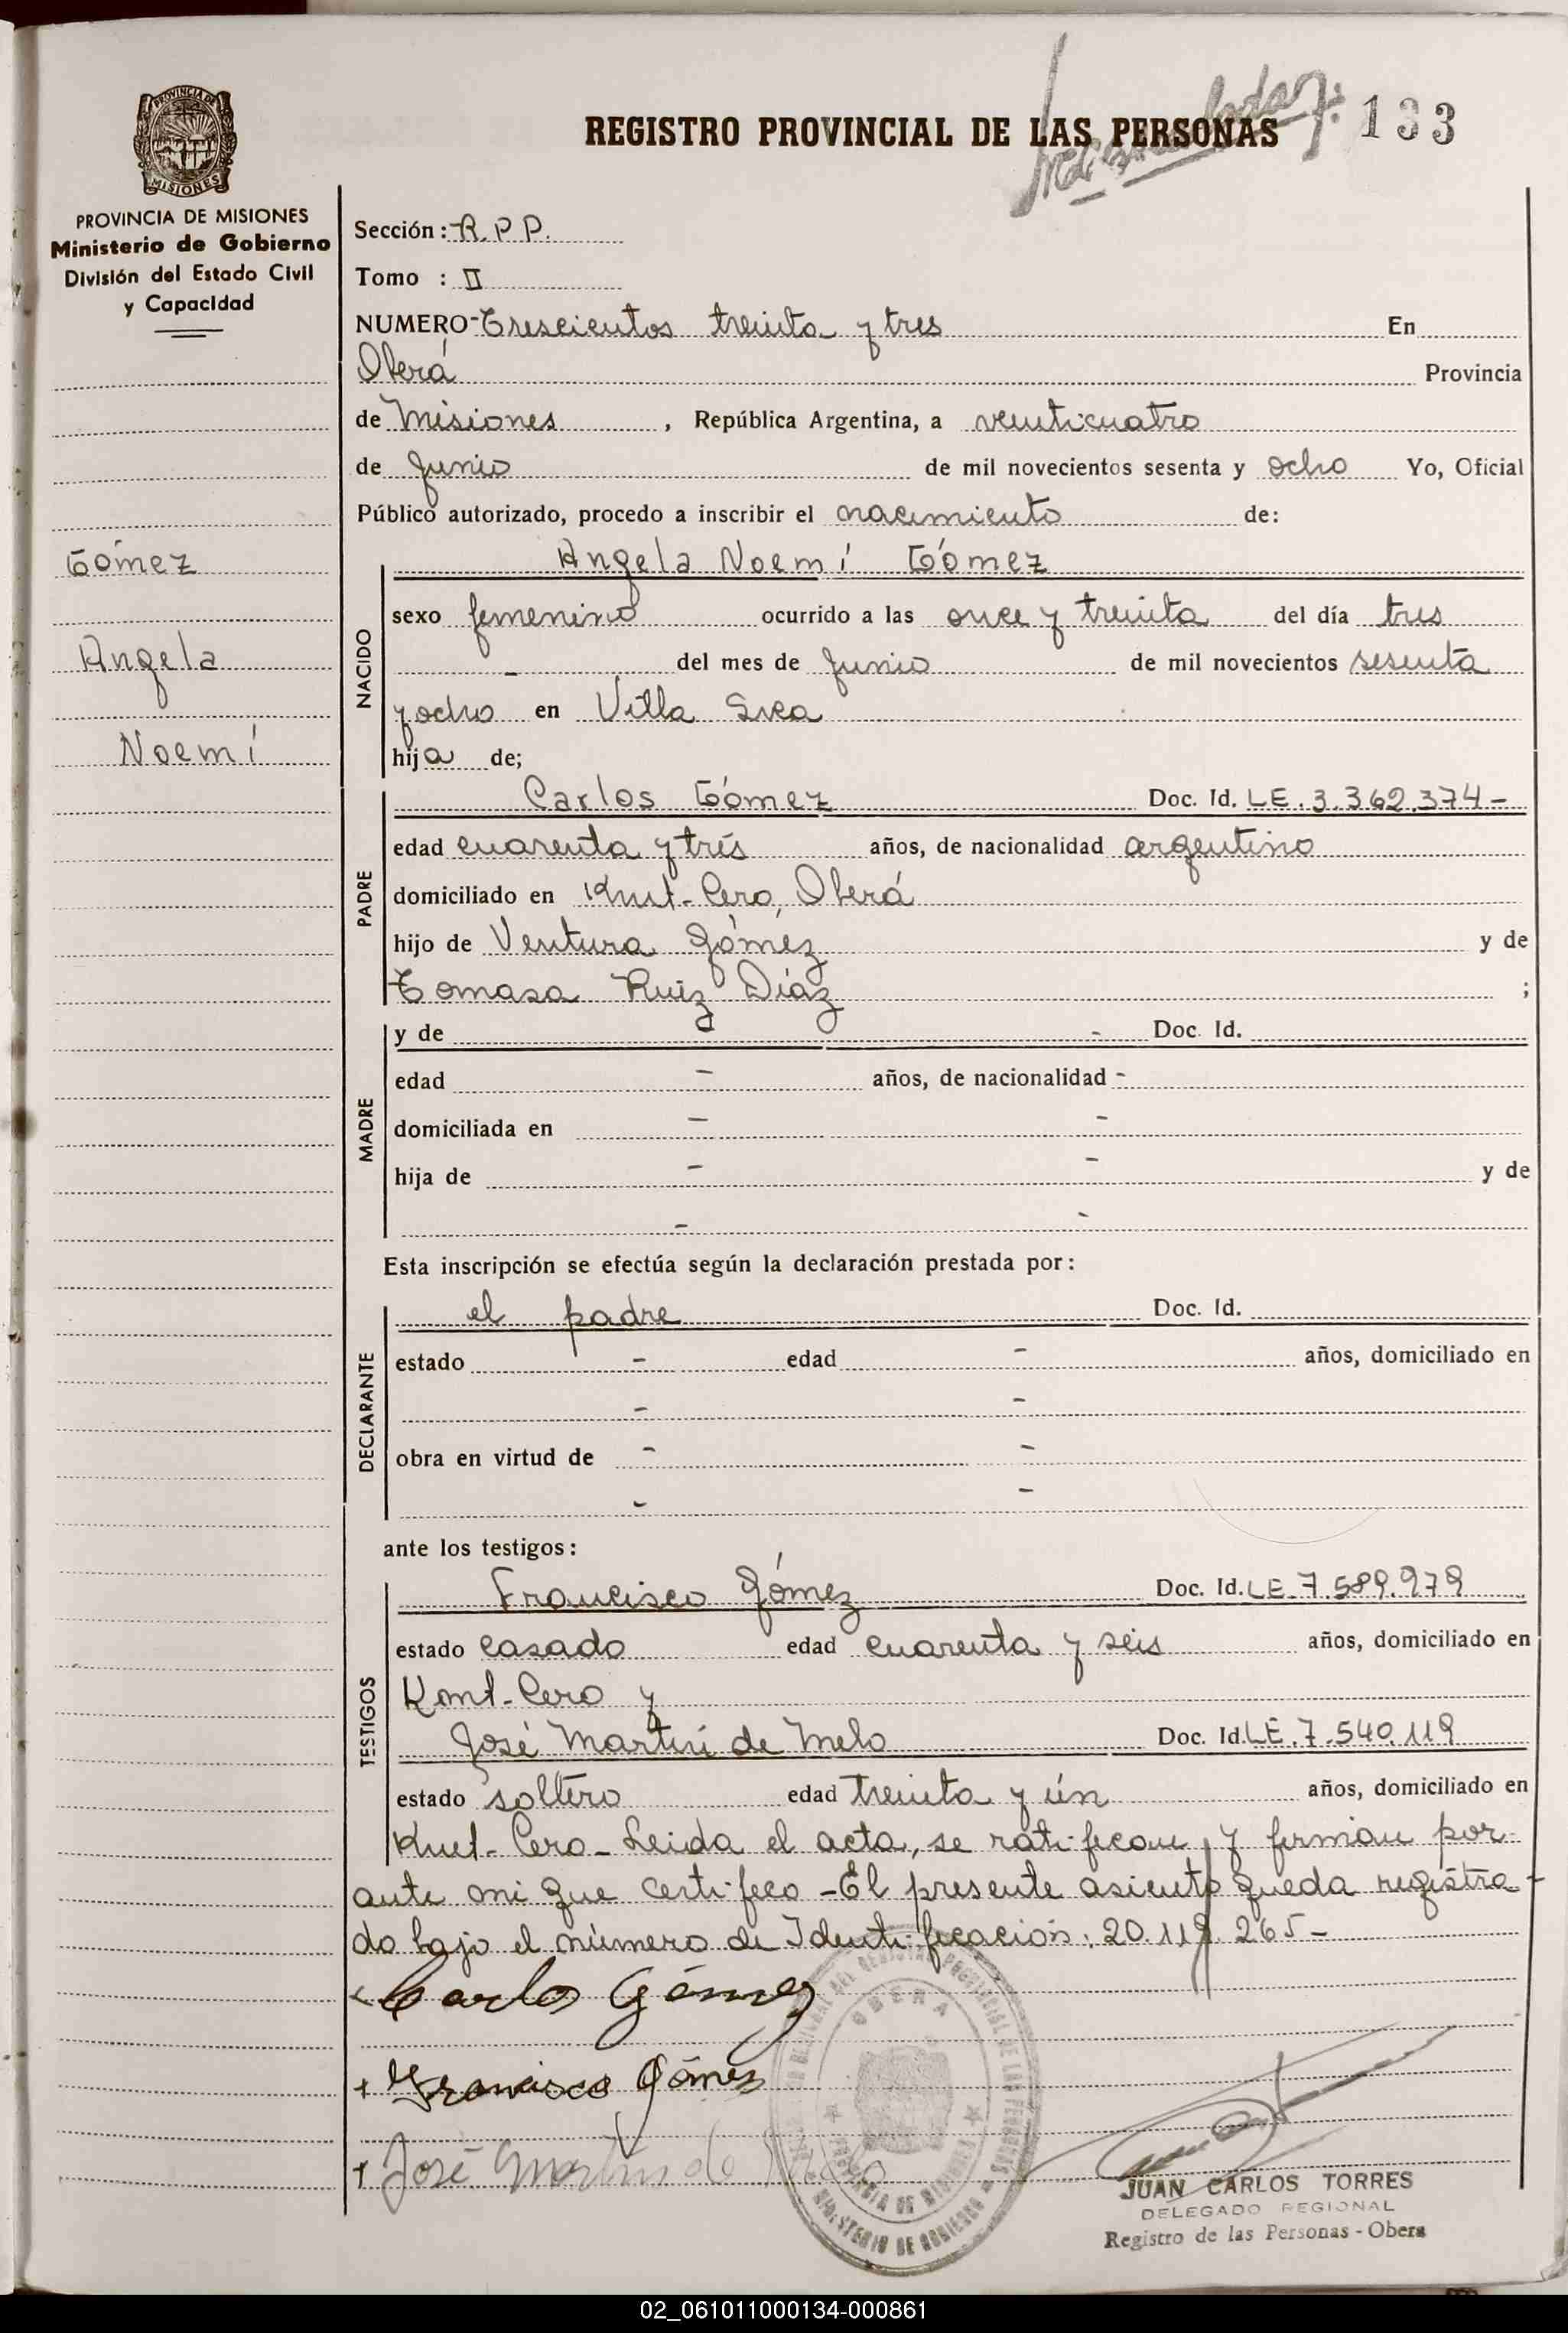 REGISTRO PROVINCIAL DE LAS PERSONAS
133
PROVINCIA DE MISIONES
PROVINCIA DE MISIONES
Ministerio de Gobierno
División del Estado Civil
y Capacidad
Gómez
Angela
Noemí
Sección: R.P.P.
Tomo : II
NUMERO-Trescientos treinta y tres En
Oberá Provincia
de Misiones, República Argentina, a veinticuatro
de Junio de mil novecientos sesenta y ocho Yo, Oficial
Público autorizado, procedo a inscribir el nacimiento de:
NACIDO
Angela Noemí Gómez
sexo femenino ocurrido a las once y treinta del día tres
- del mes de Junio de mil novecientos sesenta
y ocho en Villa Svea
hija de;
PADRE
Carlos Gómez Doc. Id. LE.3.362.374-
edad cuarenta y trés años, de nacionalidad argentino
domiciliado en Cero, Oberá
hijo de Ventura Gómez y de
Tomasa Ruiz Diáz ;
MADRE
y de - Doc. Id.
edad - años, de nacionalidad -
domiciliada en - -
hija de - - y de
- -
Esta inscripción se efectúa según la declaración prestada por:
DECLARANTE
el padre Doc. Id.
estado - edad - años, domiciliado en
- -
obra en virtud de - -
- -
ante los testigos:
TESTIGOS
Francisco Gómez Doc. Id. LE.7.589.979
estado casado edad cuarenta y seis años, domiciliado en
Cero y
José Martín de Melo Doc. Id. LE.7.540.119
estado soltero edad treinta y ún años, domiciliado en
Cero- Leida el acta, se ratifican y firman por
ante mi que certifico -El presente asiento queda registra-
do bajo el número de Identificación: 20.119.265-
Carlos Gómez
+ Francisco Gómez
+ José Martin de Melo
OBERA
PROVINCIA DE MISIONES
MINISTERIO DE GOBIERNO
JUAN CARLOS TORRES
DELEGADO REGIONAL
Registro de las Personas - Obera
02_061011000134-000861